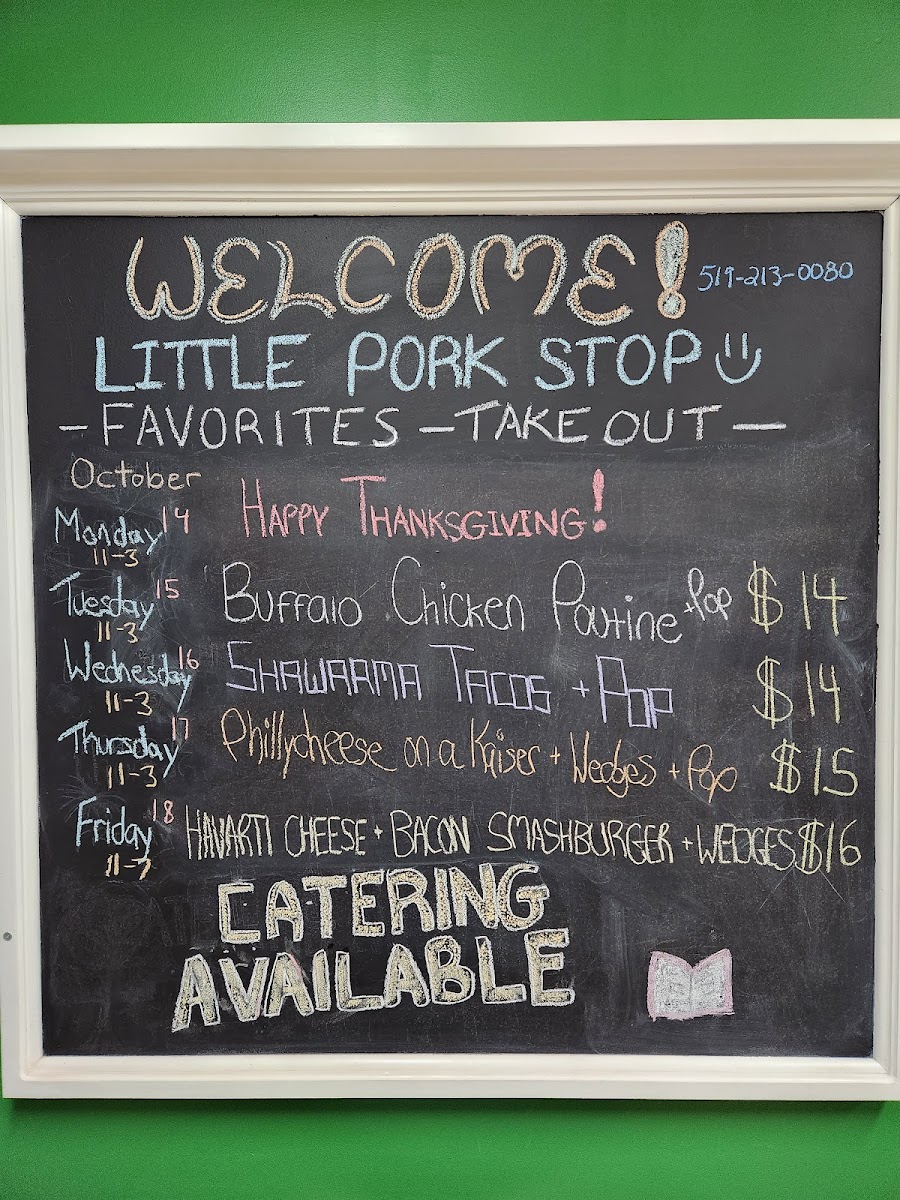 WELCOME!
519-213-0080
LITTLE PORK STOP
- FAVORITES - TAKE OUT -
October
Monday 14 HAPPY THANKSGIVING!
11-3
Tuesday 15 BUFFALO CHICKEN POUTINE + POP $14
11-3
Wednesday 16 SHAWARMA TACOS + POP $14
11-3
Thursday 17 Phillycheese on a Kaiser + Wedges + Pop $15
11-3
Friday 18 HAVARTI CHEESE + BACON SMASHBURGER + WEDGES $16
11-7
CATERING
AVAILABLE